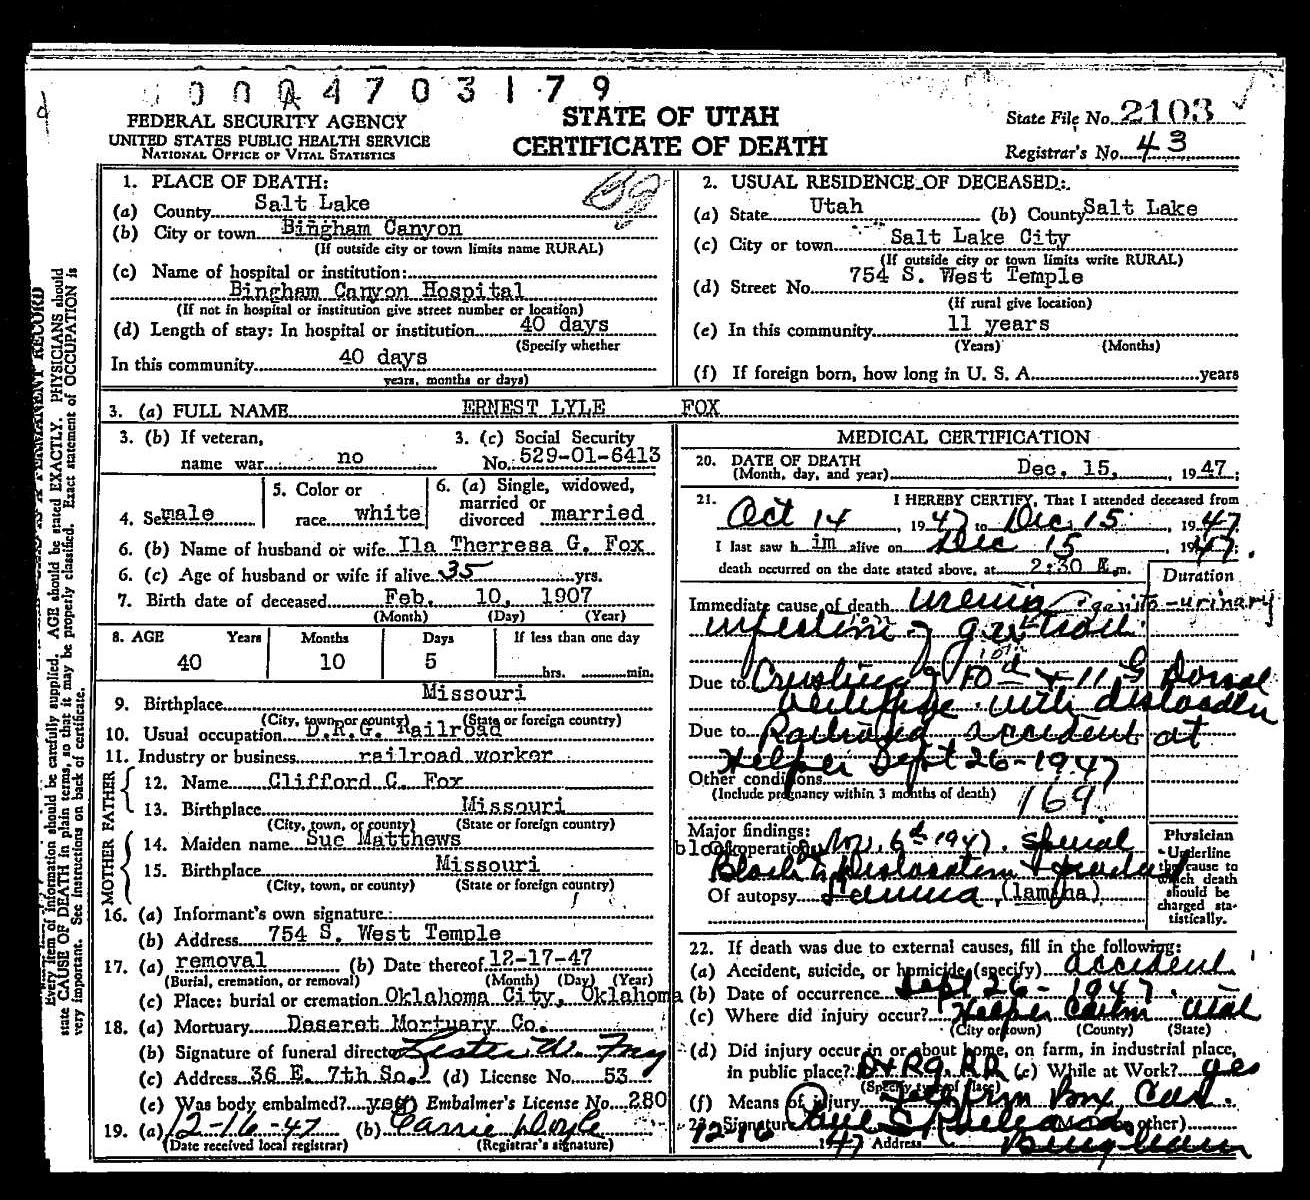 0004703179
FEDERAL SECURITY AGENCY
UNITED STATES PUBLIC HEALTH SERVICE
NATIONAL OFFICE OF VITAL STATISTICS
STATE OF UTAH
CERTIFICATE OF DEATH
State File No. 2103
Registrar's No. 43
Every item of information should be carefully supplied. AGE should be stated EXACTLY. PHYSICIANS should
state CAUSE OF DEATH in plain terms, so that it may be properly classified. Exact statement of OCCUPATION is
very important. See instructions on back of certificate.
1. PLACE OF DEATH:
(a) County Salt Lake
(b) City or town Bingham Canyon
(If outside city or town limits name RURAL)
(c) Name of hospital or institution:
Bingham Canyon Hospital
(If not in hospital or institution give street number or location)
(d) Length of stay: In hospital or institution 40 days
(Specify whether
In this community 40 days
years, months or days)
2. USUAL RESIDENCE OF DECEASED:
(a) State Utah (b) County Salt Lake
(c) City or town Salt Lake City
(If outside city or town limits write RURAL)
(d) Street No. 754 S. West Temple
(If rural give location)
(e) In this community 11 years
(Years) (Months)
(f) If foreign born, how long in U. S. A. years
3. (a) FULL NAME ERNEST LYLE FOX
3. (b) If veteran, name war no
3. (c) Social Security No. 529-01-6413
4. Sex male
5. Color or race white
6. (a) Single, widowed, married or divorced married
6. (b) Name of husband or wife Ila Therresa G. Fox
6. (c) Age of husband or wife if alive 35 yrs.
7. Birth date of deceased Feb. 10, 1907
(Month) (Day) (Year)
8. AGE Years Months Days If less than one day
40 10 5 hrs. min.
9. Birthplace Missouri
(City, town, or county) (State or foreign country)
10. Usual occupation D.R.G. Railroad
11. Industry or business railroad worker
FATHER
12. Name Clifford C. Fox
13. Birthplace Missouri
(City, town, or county) (State or foreign country)
MOTHER
14. Maiden name Sue Matthews
15. Birthplace Missouri
(City, town, or county) (State or foreign country)
16. (a) Informant's own signature:
(b) Address 754 S. West Temple
17. (a) removal (b) Date thereof 12-17-47
(Burial, cremation, or removal) (Month) (Day) (Year)
(c) Place: burial or cremation Oklahoma City, Oklahoma
18. (a) Mortuary Deseret Mortuary Co.
(b) Signature of funeral director Lester W. Fry
(c) Address 36 E. 7th So. (d) License No. 53
(e) Was body embalmed? yes Embalmer's License No. 280
19. (a) 12-16-47 (b) Carrie Doyle
(Date received local registrar) (Registrar's signature)
MEDICAL CERTIFICATION
20. DATE OF DEATH
(Month, day, and year) Dec. 15, 1947;
21. I HEREBY CERTIFY, That I attended deceased from
Oct 14, 1947 to Dec 15, 1947
I last saw him alive on Dec 15, 1947;
death occurred on the date stated above, at 2:30 A.m.
Duration
Immediate cause of death uremia genito-urinary
infection of g.u. tract.
Due to Crushing of 10th + 11th Dorsal
vertebrae with dislocation
Due to Railroad accident at
Helper Sept 26-1947
Other conditions
(Include pregnancy within 3 months of death) 169
Major findings:
Of operation Nov. 6th 1947. spinal
block
Block to Dislocation + fractured
Of autopsy Lamina (lamina)
Physician
Underline the cause to which death should be charged statistically.
22. If death was due to external causes, fill in the following:
(a) Accident, suicide, or homicide (specify) accident
(b) Date of occurrence Sept 26-1947.
(c) Where did injury occur? Helper Carbon Utah
(City or town) (County) (State)
(d) Did injury occur in or about home, on farm, in industrial place,
in public place? D+RG RR (e) While at Work? yes
(Specify type of place)
(f) Means of injury Fell from Box Car.
23. Signature Paul S. Richards (M.D. or other)
12-16 1947 Address Bingham